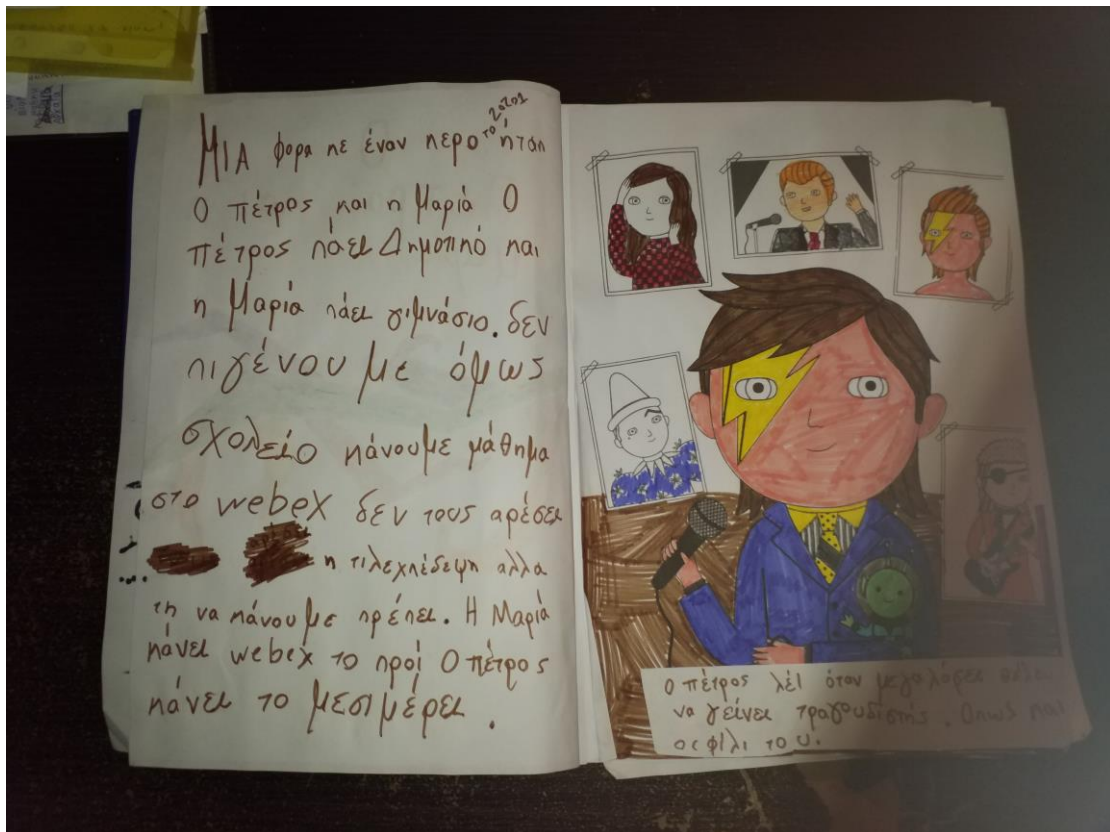 ΜΙΑ φορα κε έναν κερο το 20201 ήταν
Ο πέτρος και η Μαρία Ο
πέτρος πάει Δημοτικό και
η Μαρία πάει γιμνάσιο. δεν
πιγένου με όμως
σχολείο κάνουμε μάθημα
στο webex δεν τους αρέσει
η τιλεχπέδεψη αλλα
τη να κάνουμε πρέπει. Η Μαρία
κάνει webex το προί Ο πέτρος
κάνει το μεσιμέρει.
Ο πέτρος λέι όταν μεγαλόσει
να γείνει τραγουδιστής. Οπως και
οι φίλι του.